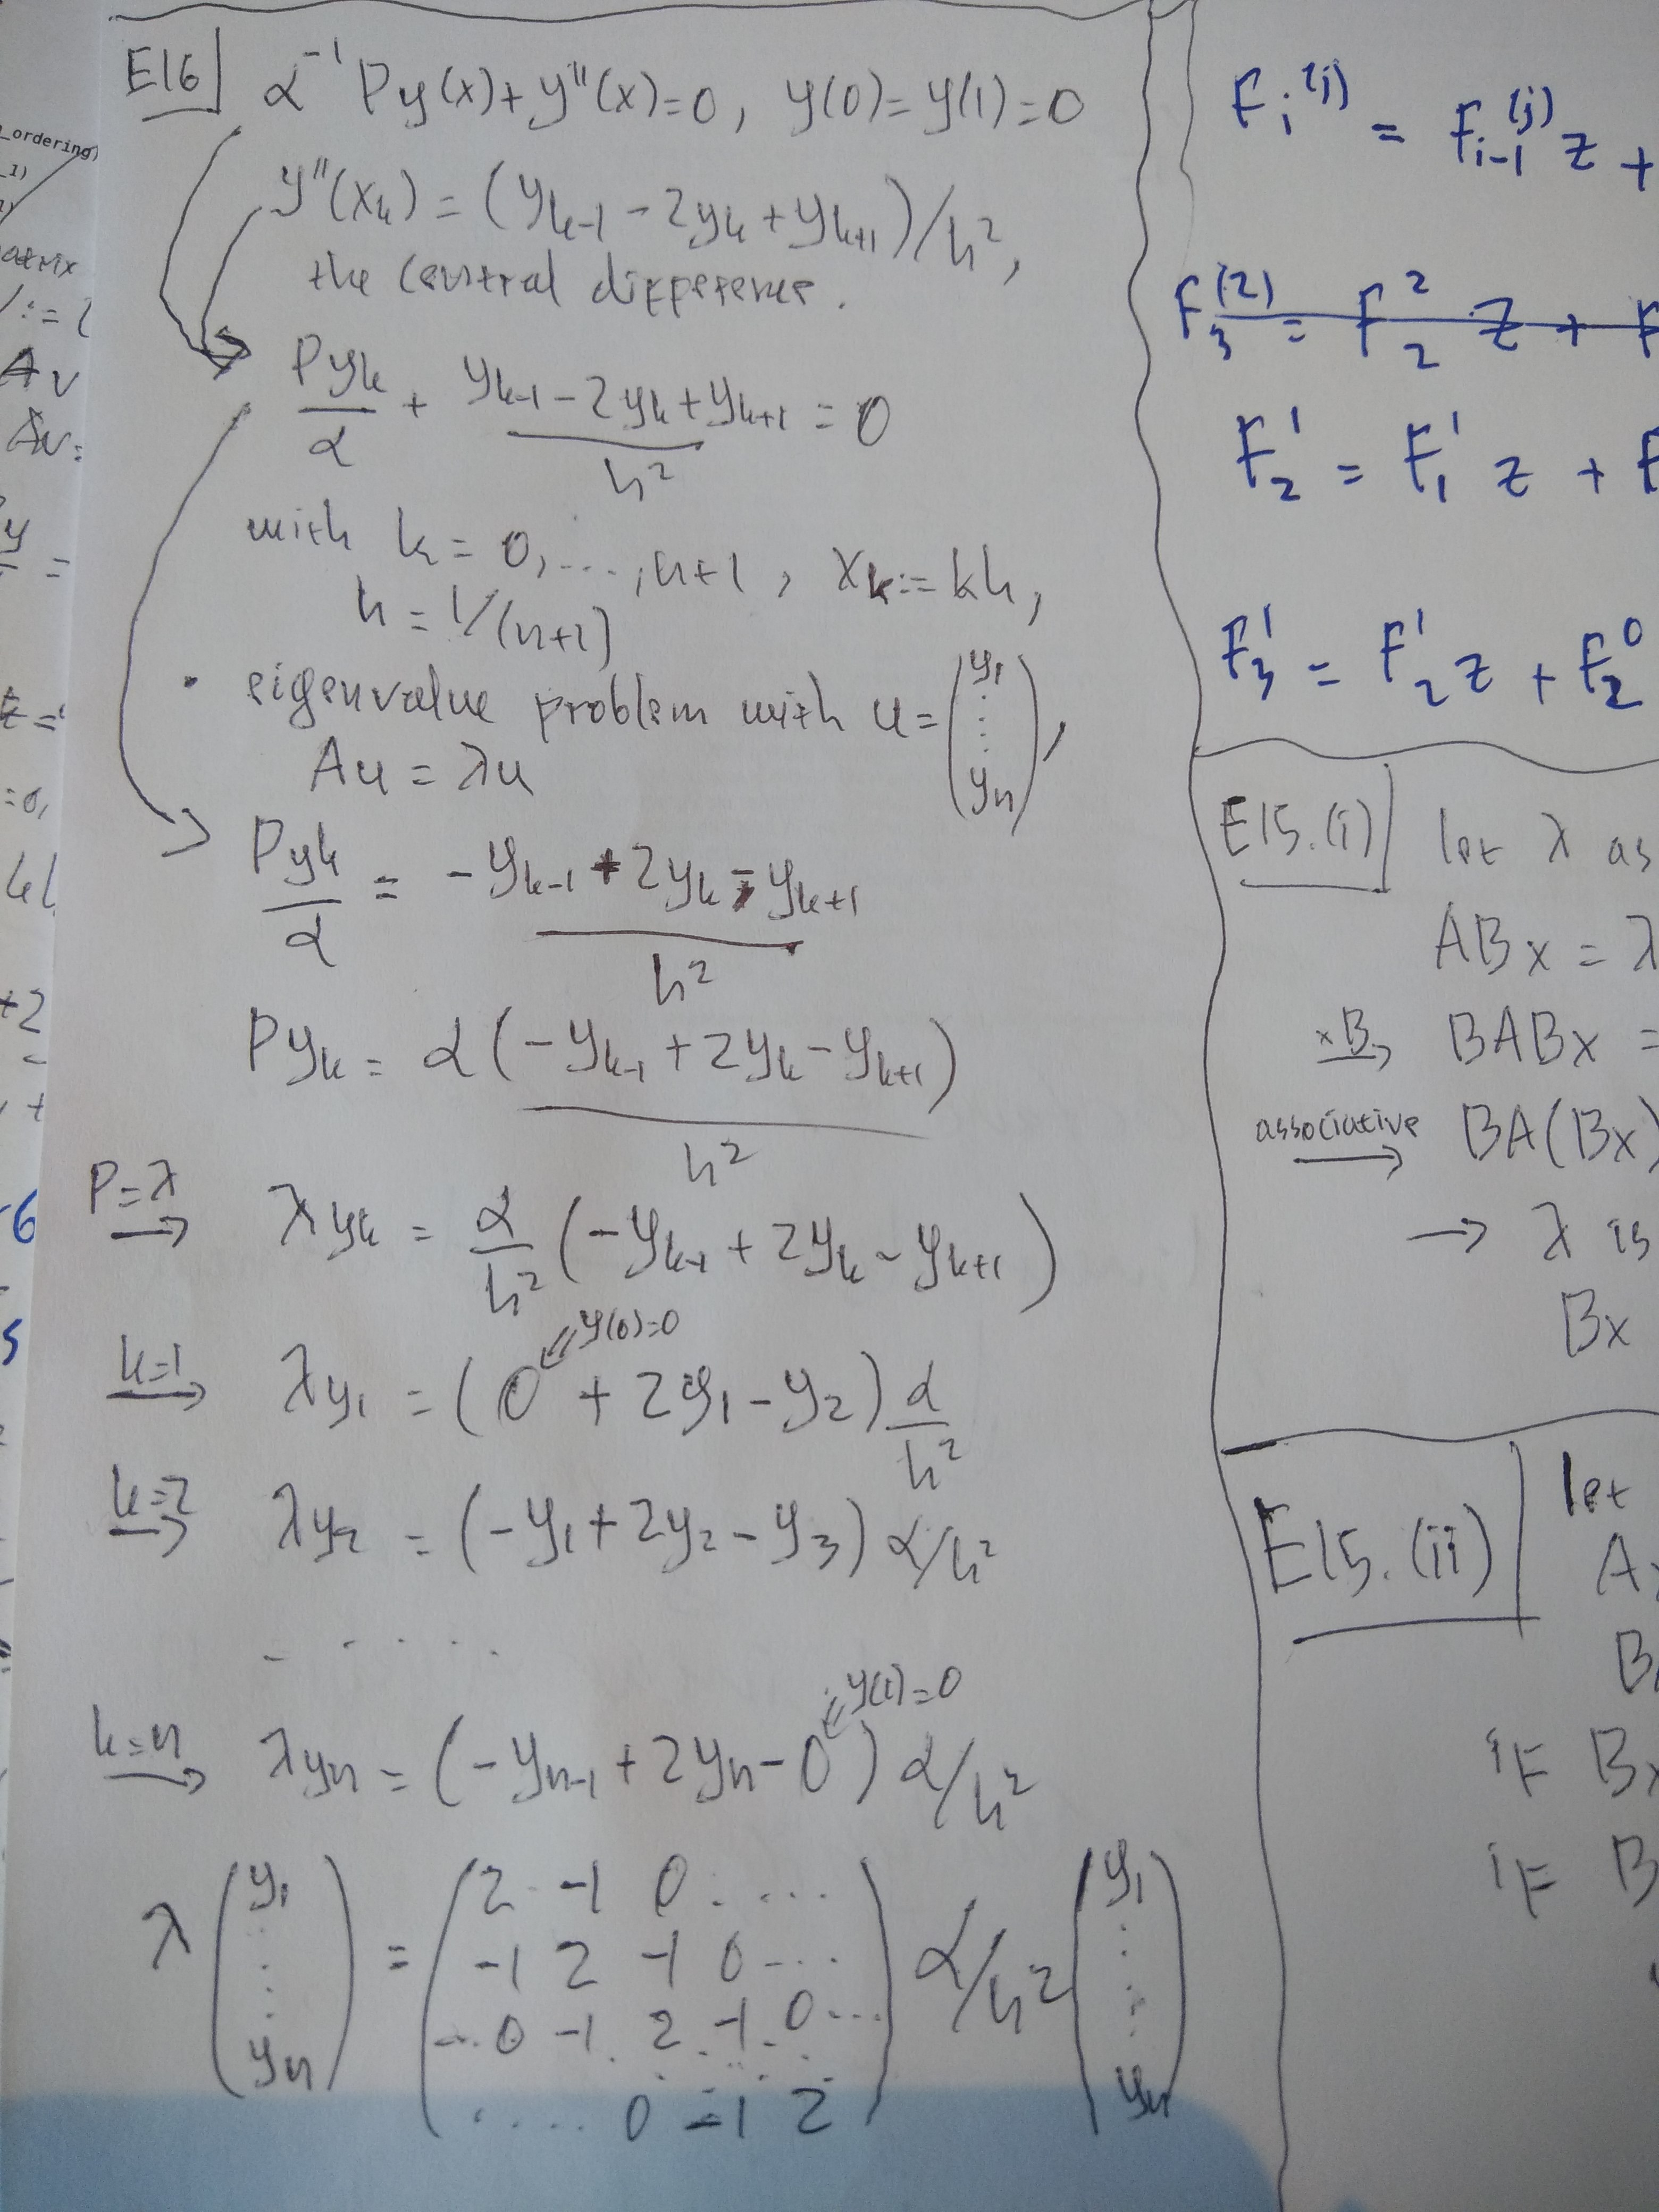 E16 α⁻¹ Py(x) + y''(x) = 0, y(0) = y(1) = 0
y''(xₖ) = (yₖ₋₁ - 2yₖ + yₖ₊₁)/h²,
the central difference.
Pyₖ/α + (yₖ₋₁ - 2yₖ + yₖ₊₁)/h² = 0
with k = 0, ..., n+1, xₖ := kh,
h = 1/(n+1)
• eigenvalue problem with u = (y₁ ⋮ yₙ),
Au = λu
Pyₖ/α = (-yₖ₋₁ + 2yₖ - yₖ₊₁)/h²
Pyₖ = α(-yₖ₋₁ + 2yₖ - yₖ₊₁)/h²
P=λ → λyₖ = α/h² (-yₖ₋₁ + 2yₖ - yₖ₊₁)
y(0)=0
k=1 → λy₁ = (0 + 2y₁ - y₂) α/h²
k=2 → λy₂ = (-y₁ + 2y₂ - y₃) α/h²
.....
y(1)=0
k=n → λyₙ = (-yₙ₋₁ + 2yₙ - 0) α/h²
λ (y₁ ⋮ yₙ) = (2 -1 0 ....
-1 2 -1 0 ....
... 0 -1 2 -1 0 ...
.... 0 -1 2) α/h² (y₁ ⋮ yₙ)
Fᵢ⁽ʲ⁾ = Fᵢ₋₁⁽ʲ⁾ z +
F₃⁽²⁾ = F₂² z + F
F₂¹ = F₁¹ z + F
F₃¹ = F₂¹ z + F₂⁰
E15.(i) let λ as
ABx = λ
×B → BABx =
associative → BA(Bx)
→ λ is
Bx
E15.(ii) let
A
B
if Bx
if B
_ordering)
_1)
atrix
Av
Av=